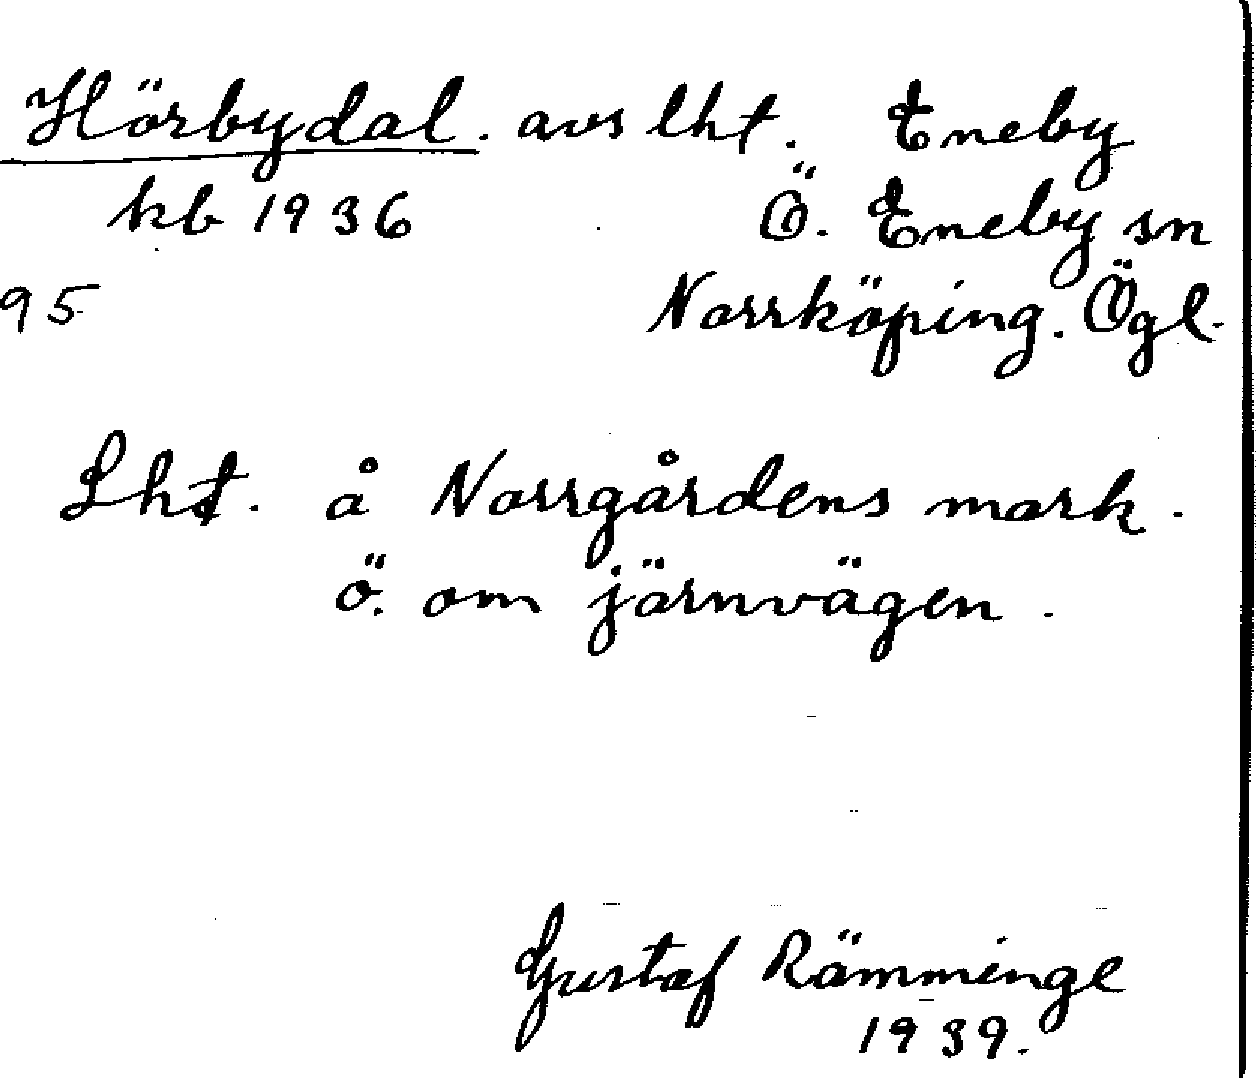 Hörbydal. avs lht. Eneby
kb 1936 Ö. Eneby sn
95 Norrköping. Ögl.
Lht. å Norrgårdens mark.
ö. om järnvägen.
Gustaf Rämminge
1939.